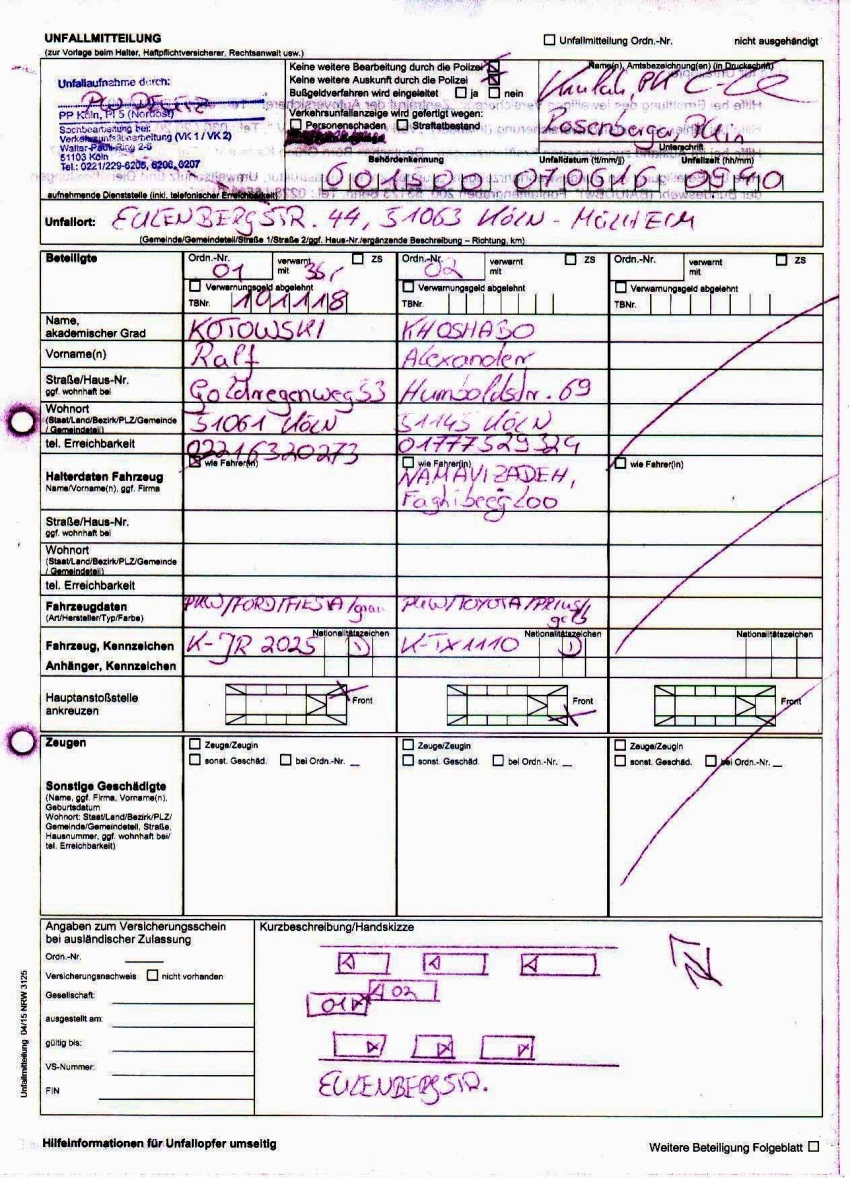 UNFALLMITTEILUNG
(zur Vorlage beim Halter, Haftpflichtversicherer, Rechtsanwalt usw.)
Unfallmitteilung Ordn.-Nr. nicht ausgehändigt
Unfallaufnahme durch:
PP Köln, PI 5 (Nordost)
Sachbearbeitung bei:
Verkehrsunfallbearbeitung (VK 1 / VK 2)
Walter-Pauli-Ring 2-6
51103 Köln
Tel.: 0221/229-6205, 6206, 6207
aufnehmende Dienststelle (inkl. telefonischer Erreichbarkeit)
Keine weitere Bearbeitung durch die Polizei
Keine weitere Auskunft durch die Polizei
Bußgeldverfahren wird eingeleitet ja nein
Verkehrsunfallanzeige wird gefertigt wegen:
Personenschaden Straftatbestand
Name(n), Amtsbezeichnung(en) (in Druckschrift)
Rosenberger, PK'in
Unterschrift
Behördenkennung Unfalldatum (tt/mm/jj) Unfallzeit (hh/mm)
001500 070616 0940
Unfallort: EULENBERGSTR. 44, 51063 KÖLN - MÜLHEIM
(Gemeinde/Gemeindeteil/Straße 1/Straße 2/ggf. Haus-Nr./ergänzende Beschreibung – Richtung, km)
Beteiligte Ordn.-Nr. 01 verwarnt mit 35,- ZS Ordn.-Nr. 02 verwarnt mit ZS Ordn.-Nr. verwarnt mit ZS
Verwarnungsgeld abgelehnt Verwarnungsgeld abgelehnt Verwarnungsgeld abgelehnt
TBNr. 101118 TBNr. TBNr.
Name, akademischer Grad KOTOWSKI KHOSHABO
Vorname(n) Ralf Alexander
Straße/Haus-Nr. ggf. wohnhaft bei Goldregenweg 53 Humboldtstr. 69
Wohnort (Staat/Land/Bezirk/PLZ/Gemeinde / Gemeindeteil) 51061 KÖLN 51145 KÖLN
tel. Erreichbarkeit 02216320273 01777529329
wie Fahrer(in) wie Fahrer(in) wie Fahrer(in)
Halterdaten Fahrzeug
Name/Vorname(n), ggf. Firma
NAMAVIZADEH,
Straße/Haus-Nr.
ggf. wohnhaft bei
Wohnort
(Staat/Land/Bezirk/PLZ/Gemeinde
/ Gemeindeteil)
tel. Erreichbarkeit
Fahrzeugdaten PKW/FORD/FIESTA/grau PKW/TOYOTA/PRIUS/
(Art/Hersteller/Typ/Farbe) gelb
Nationalitätszeichen Nationalitätszeichen Nationalitätszeichen
Fahrzeug, Kennzeichen K-JR 2025 D K-TX 1110 D
Anhänger, Kennzeichen
Hauptanstoßstelle
ankreuzen
Front Front Front
Zeugen Zeuge/Zeugin Zeuge/Zeugin Zeuge/Zeugin
sonst. Geschäd. bei Ordn.-Nr. sonst. Geschäd. bei Ordn.-Nr. sonst. Geschäd. bei Ordn.-Nr.
Sonstige Geschädigte
(Name, ggf. Firma, Vorname(n),
Geburtsdatum
Wohnort: Staat/Land/Bezirk/PLZ/
Gemeinde/Gemeindeteil, Straße,
Hausnummer, ggf. wohnhaft bei/
tel. Erreichbarkeit)
Angaben zum Versicherungsschein
bei ausländischer Zulassung
Ordn.-Nr.
Versicherungsnachweis nicht vorhanden
Gesellschaft:
ausgestellt am:
gültig bis:
VS-Nummer:
FIN
Kurzbeschreibung/Handskizze
N
02
01
EULENBERGSTR.
Unfallmitteilung 04/15 NRW 3125
Hilfeinformationen für Unfallopfer umseitig
Weitere Beteiligung Folgeblatt